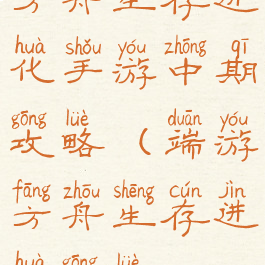 方舟生存进
huà shǒu yóu zhōng qī
化手游中期
gōng lüè duān yóu
攻略（端游
fāng zhōu shēng cún jìn
方舟生存进
huà gōng lüè